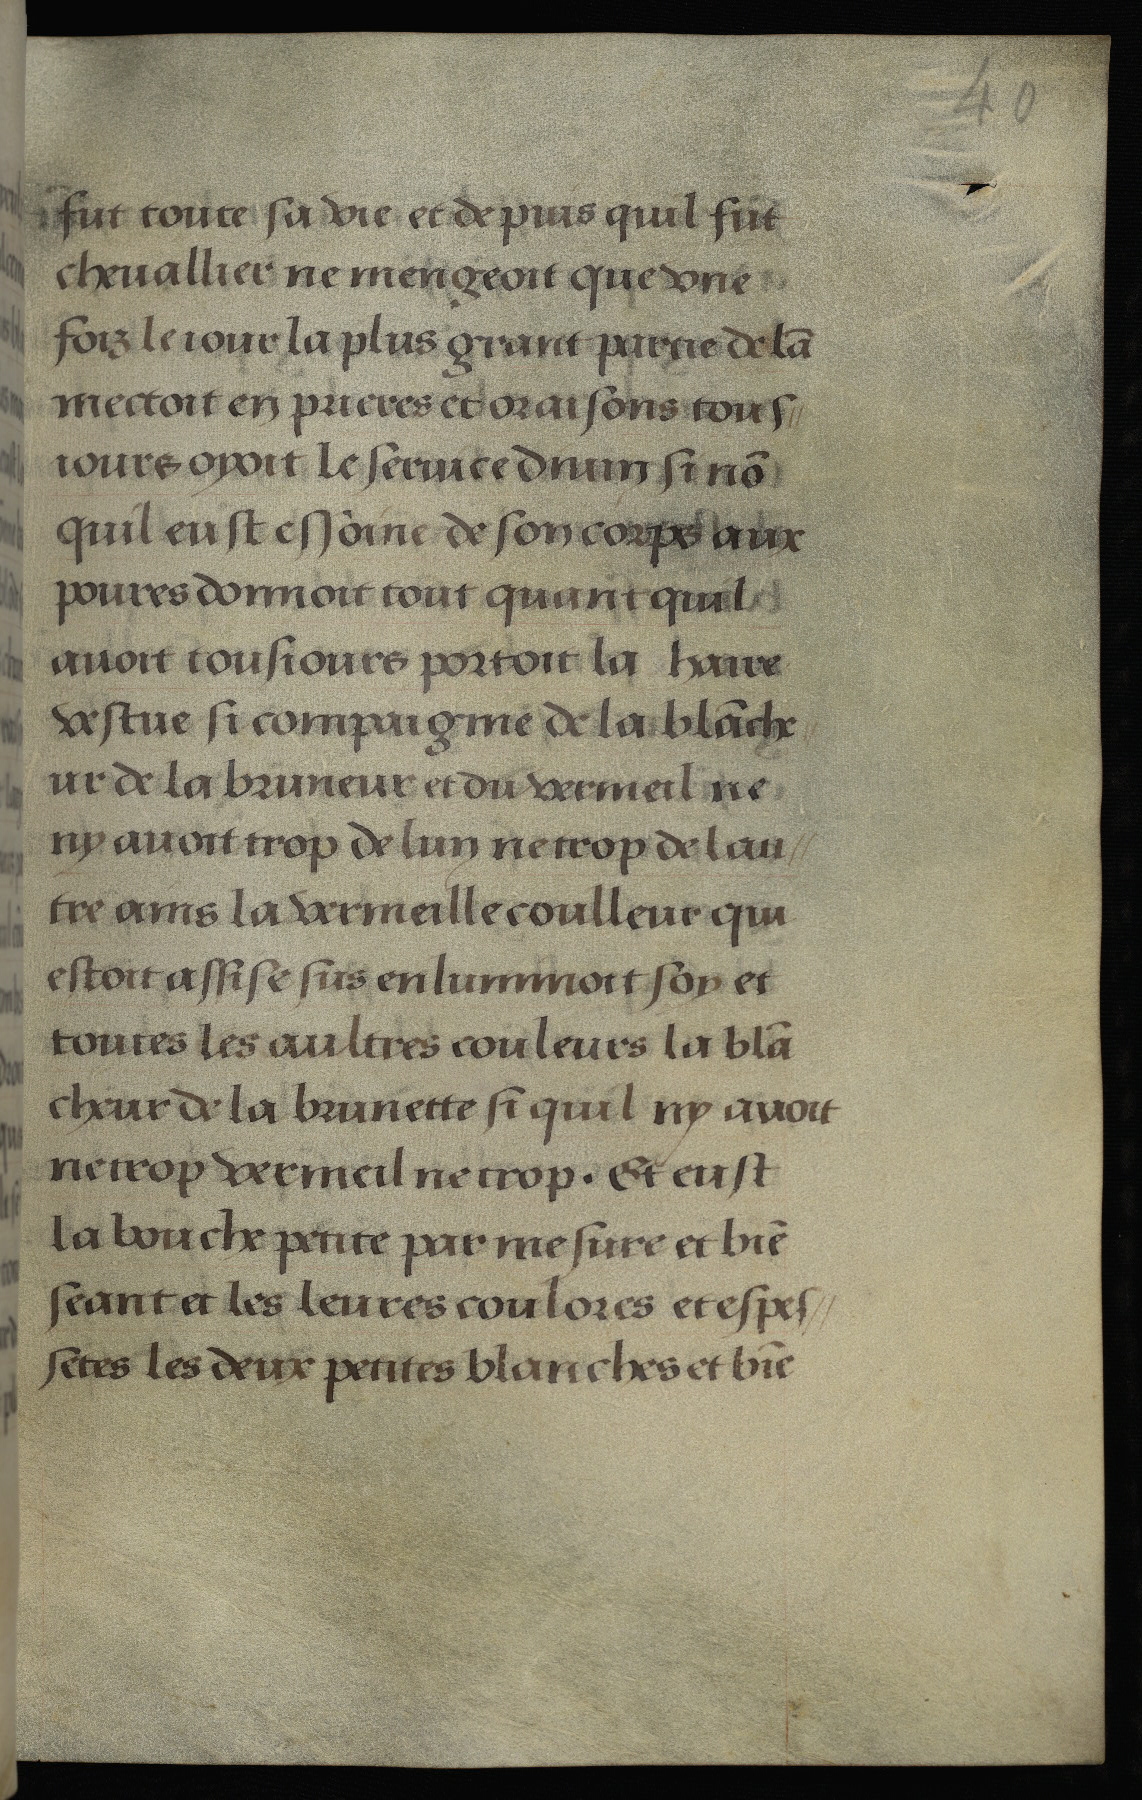 40
fut toute sa vie et depuis quil fut
cheuallier ne mengeoit que vne
foiz le iour la plus grant partie de lā
mectoit en prieres et oraisons tous//
iours oyoit le seruice diuin si nō
quil eust essoine de son corps aux
poures donnoit tout quant quil
auoit tousiours portoit la haire
vestue si compaignie de la blāche//
ur de la bruneur et du vermeil ne
ny auoit trop de lun ne trop de lau//
tre ains la vermeille coulleur qui
estoit assise sus enluminoit soy et
toutes les aultres couleurs la blā
cheur de la brunette si quil ny auoit
ne trop vermeil ne trop. Et eust
la bouche petite par mesure et biē
seant et les leures coulores et espes//
setes les deux petites blanches et biē